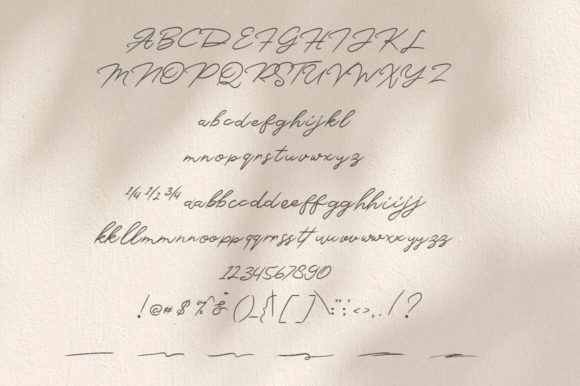 ABCDEFGHIJKL
MNOPQRSTUVWXYZ
abcdefghijkl
mnopqrstuvwxyz
1/4 1/2 3/4 aabbccddeeffgghhiijj
kkllmmnnooppqqrrssttuuvvwwxxyyzz
1234567890
!@#$%^&*()_{|[]\:";'<>,./?